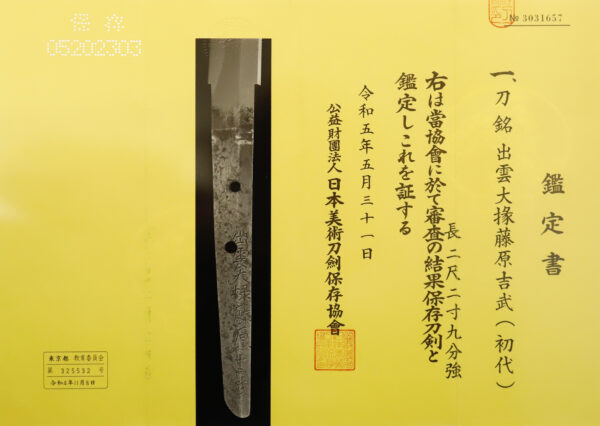 № 3031657
鑑定書
一、刀 銘 出雲大掾藤原吉武(初代)
長 二尺二寸九分強
右は當協會に於て審査の結果保存刀剣と
鑑定しこれを証する
令和五年五月三十一日
公益財團法人 日本美術刀劍保存協會
保存
05202303
出雲大掾藤原吉武
東京都 教育委員会
第 325532 号
令和4年11月8日